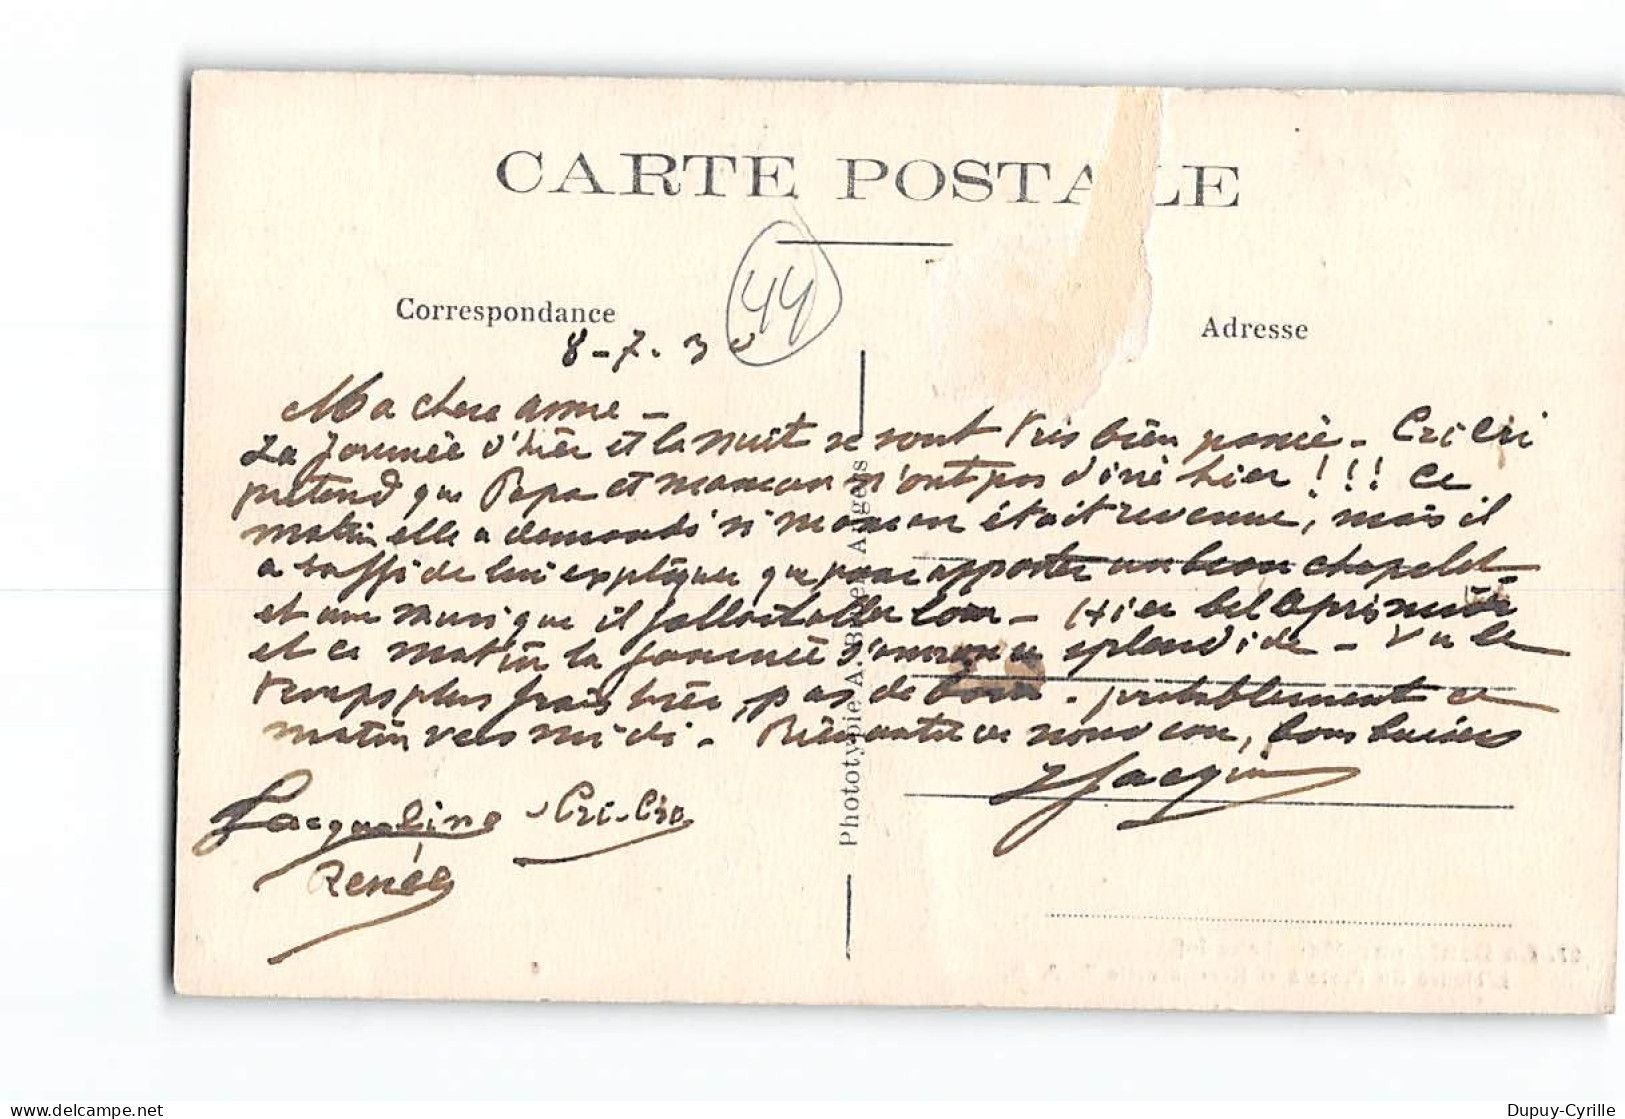 CARTE POSTALE
44
Correspondance
Adresse
8-7-30
Ma chere
La journée d'hier et la nuit se sont très bien passé - Cri Cri
prétend que Papa et maman n'ont pas diné hier !!! Ce
matin elle a demandé si maman était revenue, mais il
a suffi de lui expliquer que pour apporter un beau chapelet
et une musique il fallait aller loin - Hier bel après midi
et ce matin la journée s'annonce splendide - Vu le
temps plus frais hier, pas de bain - probablement ce
matin vers midi - bons baisers
Jacqueline Cri-Cri
Renée
Phototypie A. Bruel Agers
Dupuy-Cyrille